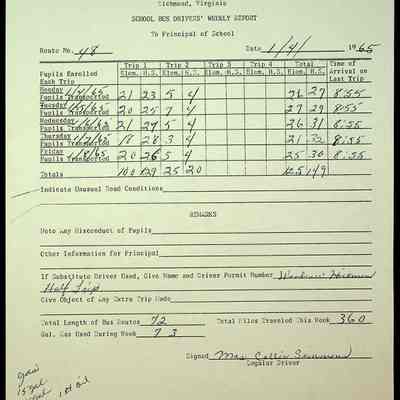 Richmond, Virginia
SCHOOL BUS DRIVERS' WEEKLY REPORT
To Principal of School
Route No. 48 Date 1/4/ 1965
Trip 1 Trip 2 Trip 3 Trip 4 Total Time of
Pupils Enrolled Elem. H.S. Elem. H.S. Elem. H.S. Elem. H.S. Elem. H.S. Arrival on
Each Trip Last Trip
Monday 1/4/65
Pupils Transported 21 23 5 4 26 27 8:55
Tuesday 1/5/65
Pupils Transported 20 25 7 4 27 29 8:55
Wednesday 1/6/65
Pupils Transported 21 27 5 4 26 31 8:55
Thursday 1/7/65
Pupils Transported 18 28 3 4 21 32 8:55
Friday 1/8/65
Pupils Transported 20 26 5 4 25 30 8:55
Totals 100 129 25 20 149
Indicate Unusual Road Conditions
REMARKS
Note Any Misconduct of Pupils
Other Information for Principal
If Substitute Driver Used, Give Name and Driver Permit Number
Half Trip
Give Object of Any Extra Trip Made
Total Length of Bus Routes 72 Total Miles Traveled This Week 360
Gal. Gas Used During Week 73
Signed Mrs. Sammons
Regular Driver